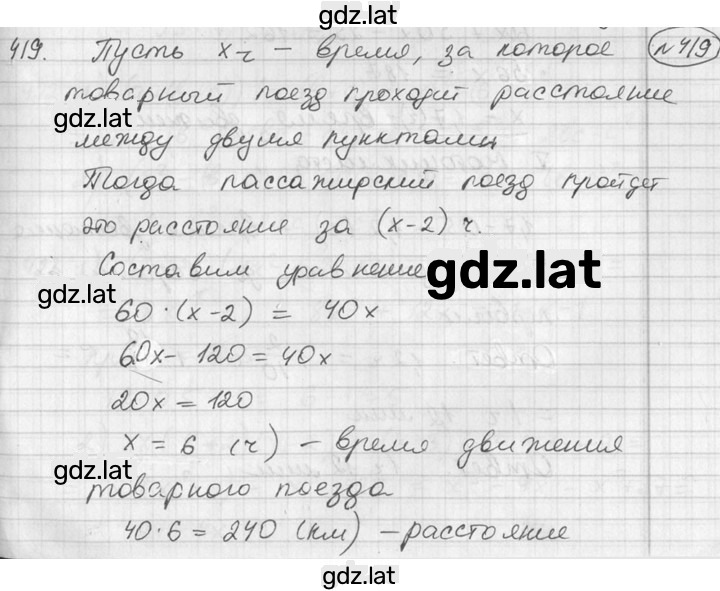 gdz.lat
419. Пусть x ч – время, за которое № 419
товарный поезд проходит расстояние
gdz.lat
между двумя пунктами
Тогда пассажирский поезд пройдет
это расстояние за (x-2) ч.
Составим уравнение
gdz.lat
gdz.lat
60·(x-2) = 40x
60x - 120 = 40x
20x = 120
x = 6 (ч) – время движения
gdz.lat
товарного поезда
40·6 = 240 (км) – расстояние
gdz.lat
gdz.lat